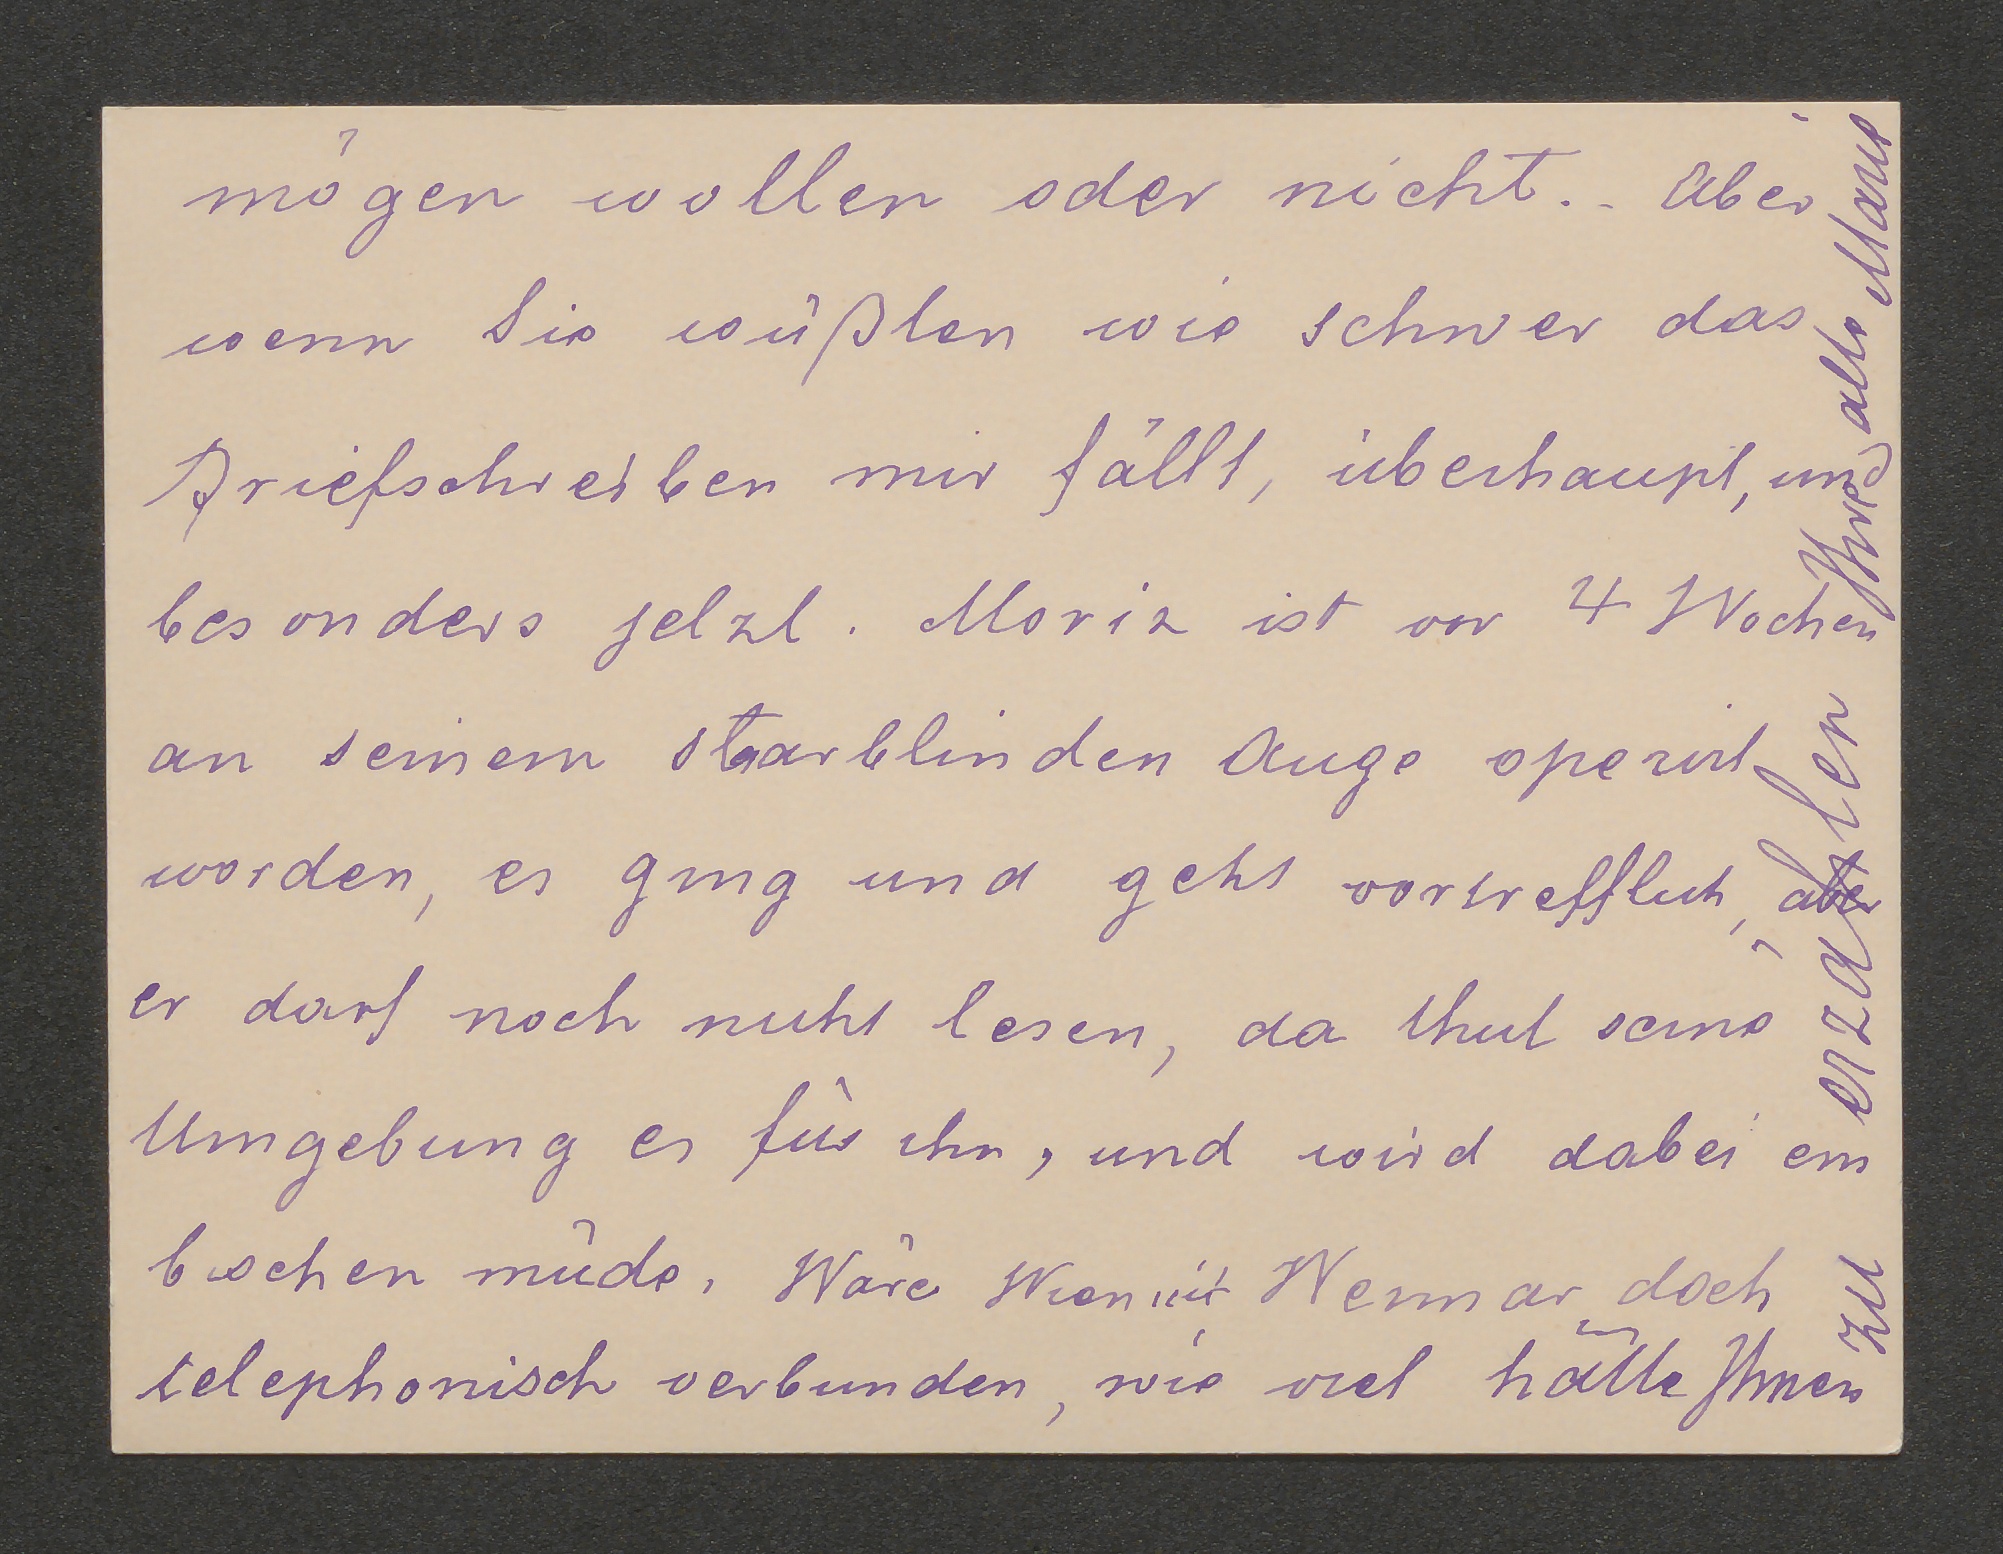 mögen wollen oder nicht. . Aber
wenn Sie wüßten wie schwer das
Briefschreiben mir fällt, überhaupt, und
besonders jetzt. Moriz ist vor 4 Wochen
an seinem starblinden Auge operirt
worden, es ging und geht vortrefflich, aber
er darf noch nicht lesen, da thut seine
Umgebung es für ihn, und wird dabei ein
bischen müde. Wäre Wien mit Weimar doch
telephonisch verbunden, wie viel hätte Ihnen
zu erzählen Ihre alte Marie